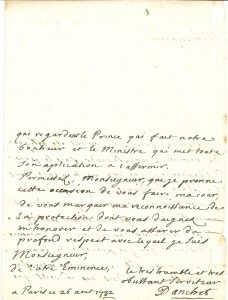 qui regardent le Prince qui fait notre
bonheur et le Ministre qui met toute
son application a l'affermir.
Permettez, Monseigneur, que je prenne
cette occasion de vous faire ma cour,
de vous marquer ma reconnoissance de
la protection dont vous daignez
m'honorer et de vous assurer du
profond respect avec lequel je suis
Monseigneur,
de votre Eminence,
le tres humble et tres
obeissant serviteur
a Paris ce 26 aout 1732
Danchet